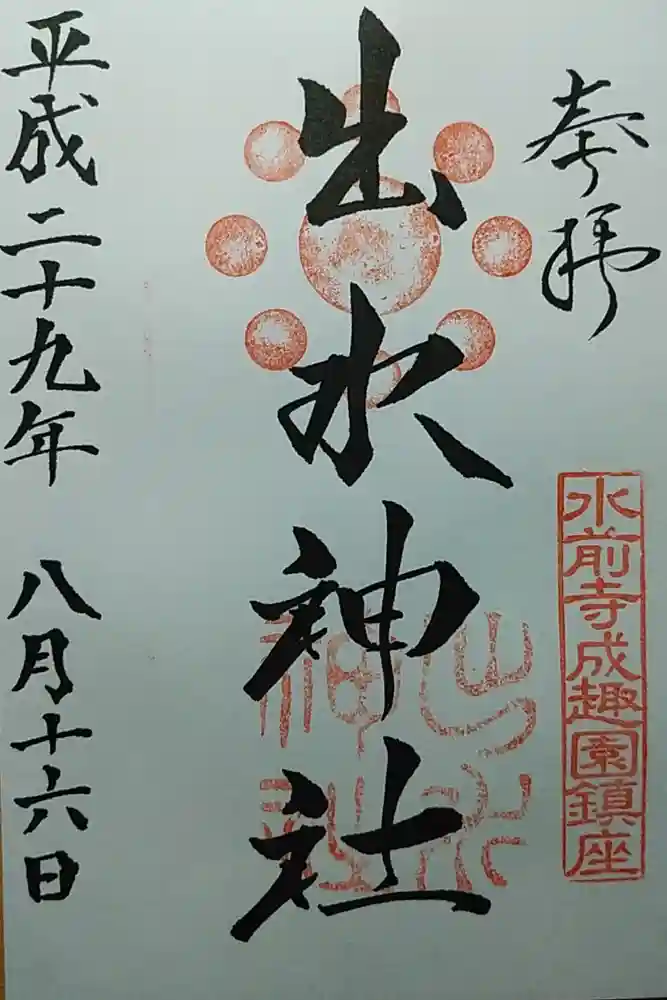 奉拝
水前寺成趣園鎮座
出水神社
出水神社
平成二十九年 八月十六日